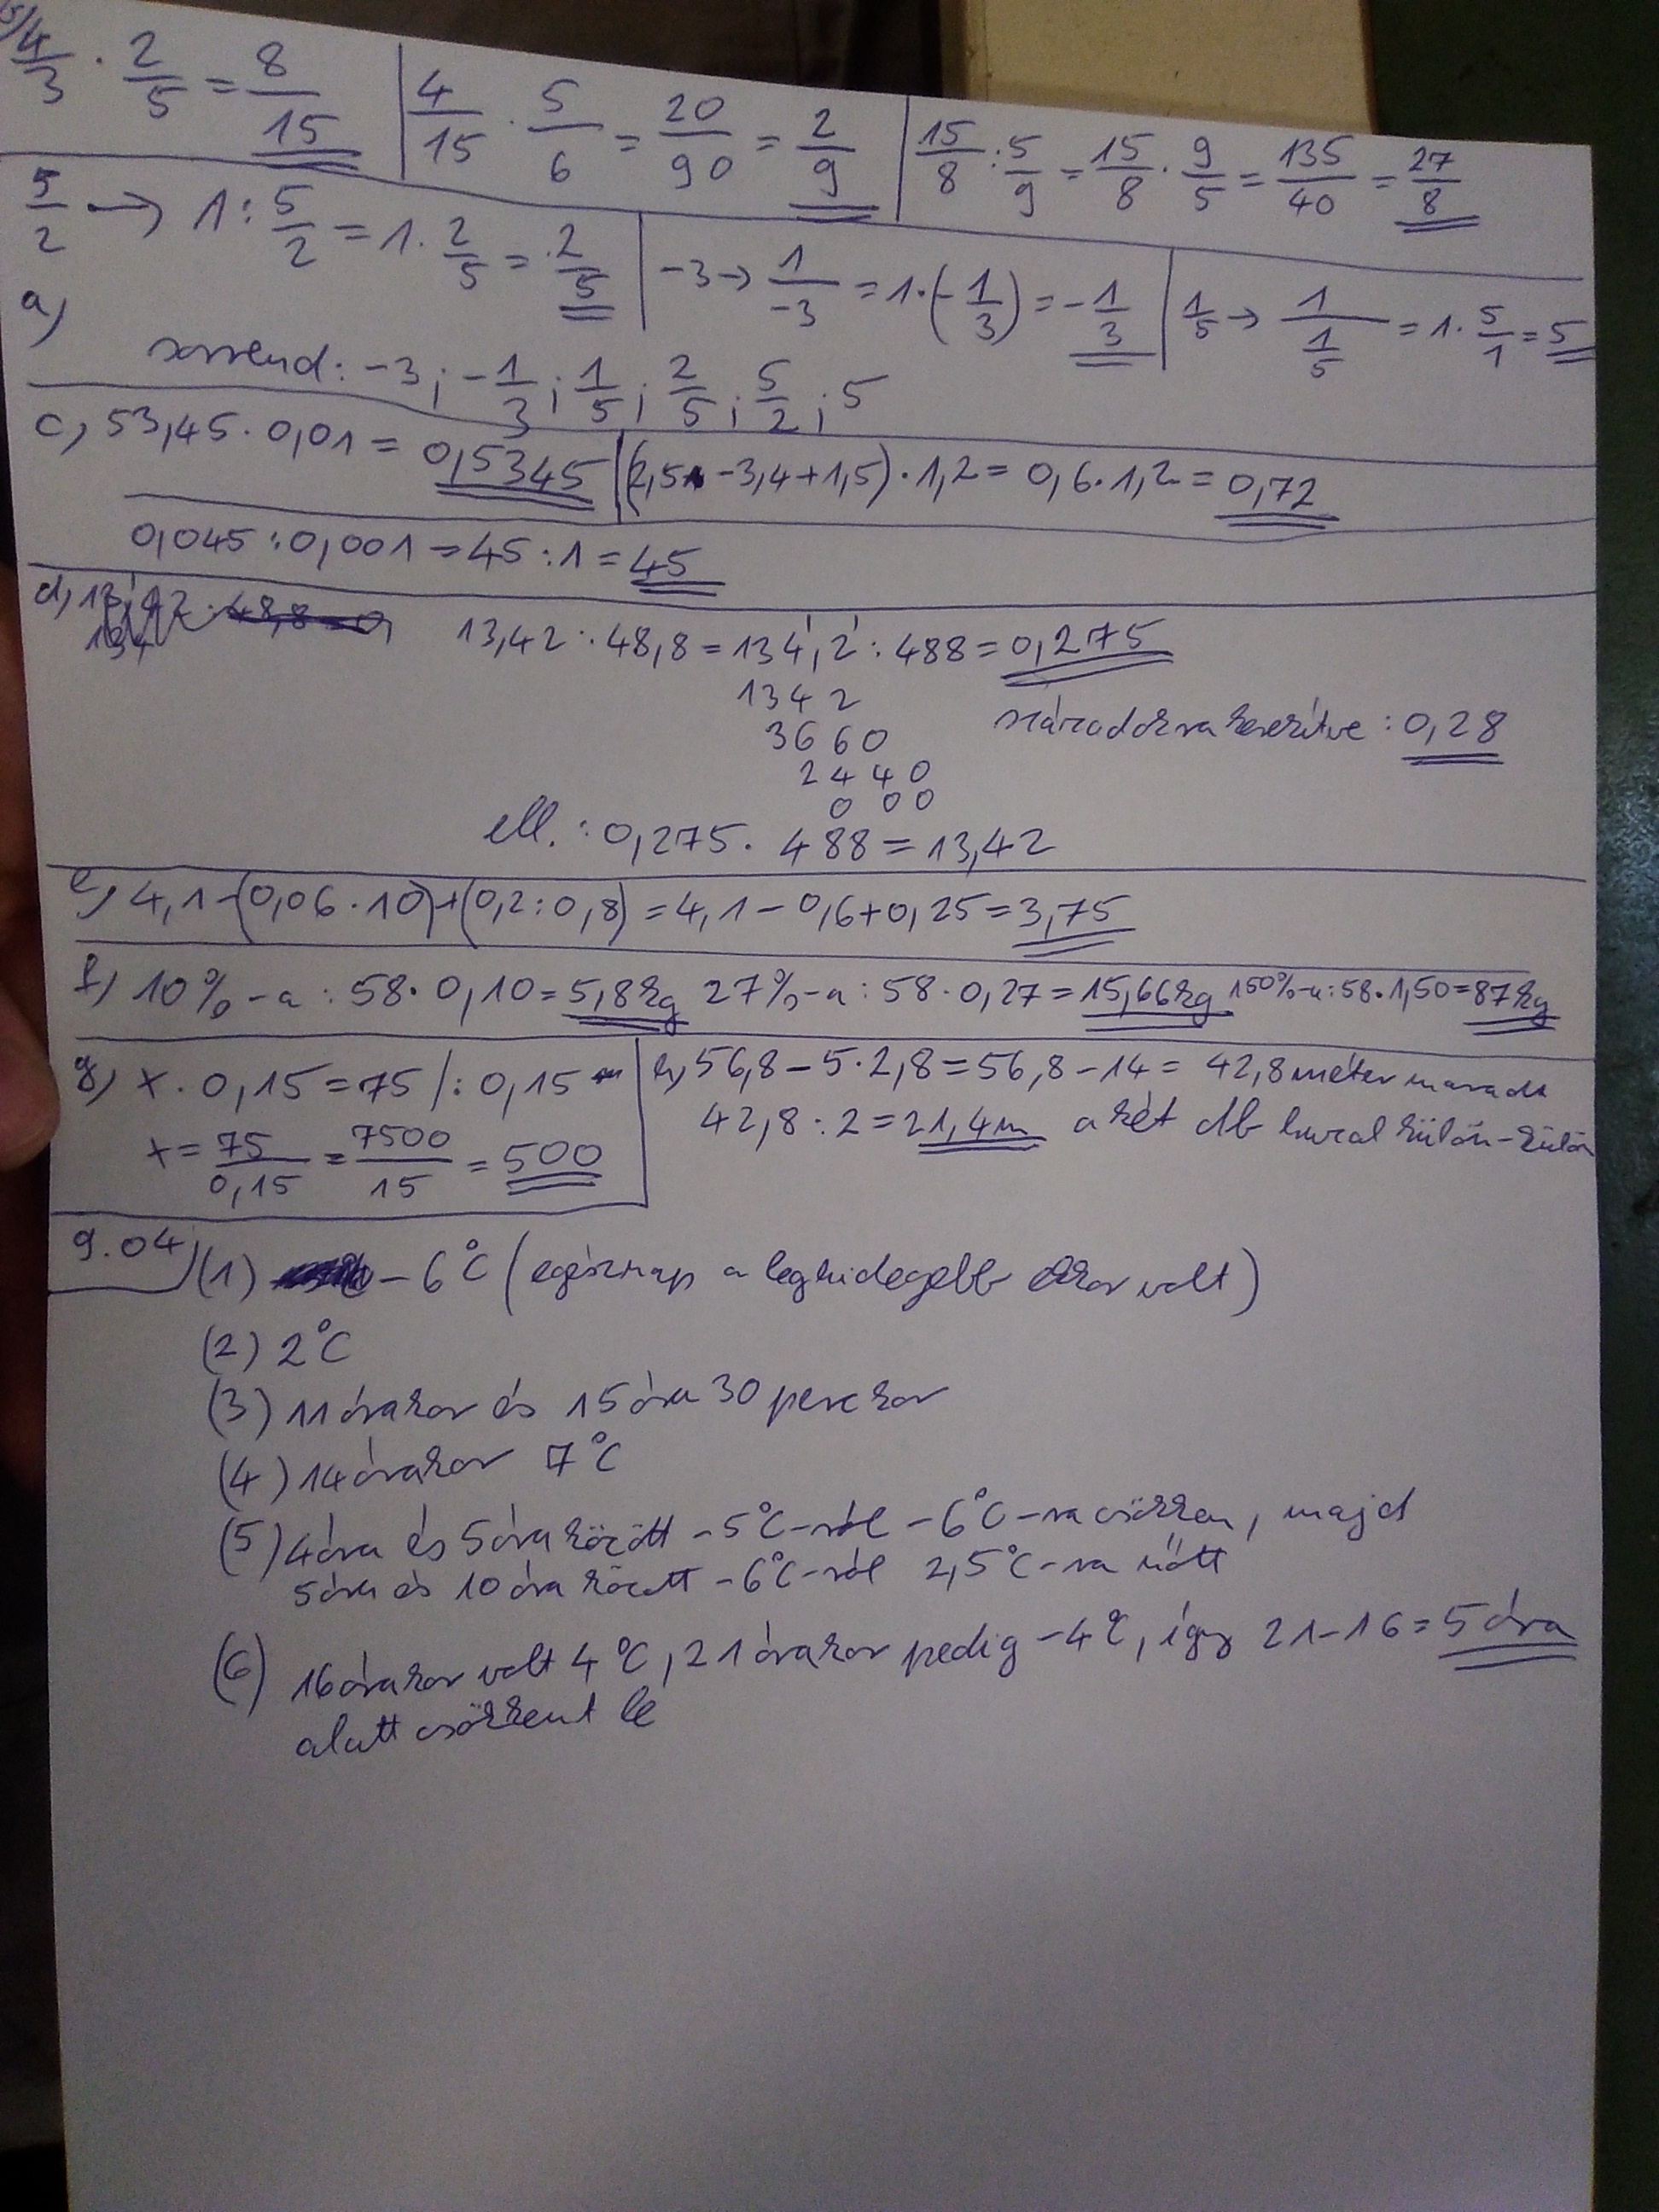 b) 4/3 · 2/5 = 8/15 | 4/15 · 5/6 = 20/90 = 2/9 | 15/8 : 5/9 = 15/8 · 9/5 = 135/40 = 27/8
5/2 → 1 : 5/2 = 1 · 2/5 = 2/5 | -3 → 1/-3 = 1 · (-1/3) = -1/3 | 1/5 → 1/(1/5) = 1 · 5/1 = 5
a)
sorrend: -3; -1/3; 1/5; 2/5; 5/2; 5
c, 53,45 · 0,01 = 0,5345 | (2,5 -3,4+1,5) · 1,2 = 0,6 · 1,2 = 0,72
0,045 : 0,001 = 45 : 1 = 45
d, 13,42 : 48,8 = 134,2 : 488 = 0,275
1342
3660
századokra kerekítve : 0,28
2440
000
ell. : 0,275 · 488 = 13,42
e, 4,1-(0,06 · 10)+(0,2 : 0,8) = 4,1 - 0,6+0,25 = 3,75
f) 10%-a : 58 · 0,10 = 5,8kg 27%-a : 58 · 0,27 = 15,66kg 150%-a : 58 · 1,50 = 87kg
g, x · 0,15 = 75 /: 0,15
x = 75/0,15 = 7500/15 = 500
h, 56,8 - 5 · 2,8 = 56,8 - 14 = 42,8 méter marad
42,8 : 2 = 21,4m a két db huzal külön-külön
9.04, (1) -6°C (egésznap a leghidegebb ekkor volt)
(2) 2°C
(3) 11 órakor és 15 óra 30 perckor
(4) 14 órakor 7°C
(5) 4 óra és 5 óra között -5°C-ról -6°C-ra csökken, majd
5 óra és 10 óra között -6°C-ról 2,5°C-ra nőtt
(6) 16 órakor volt 4°C, 21 órakor pedig -4°C, így 21-16 = 5 óra
alatt csökkent le